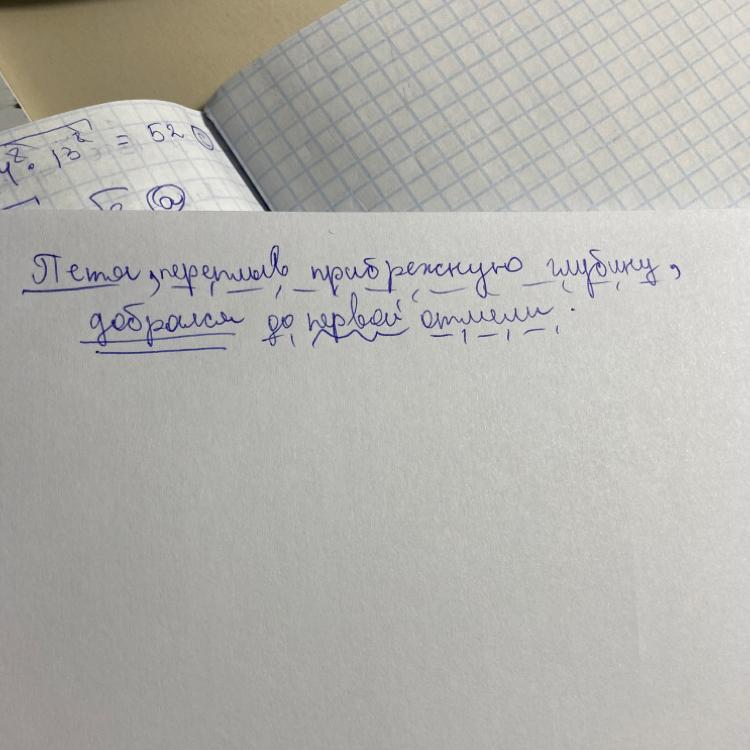 4² · 13² = 52
а
Петя, переплыв прибрежную глубину,
добрался до первой отмели.